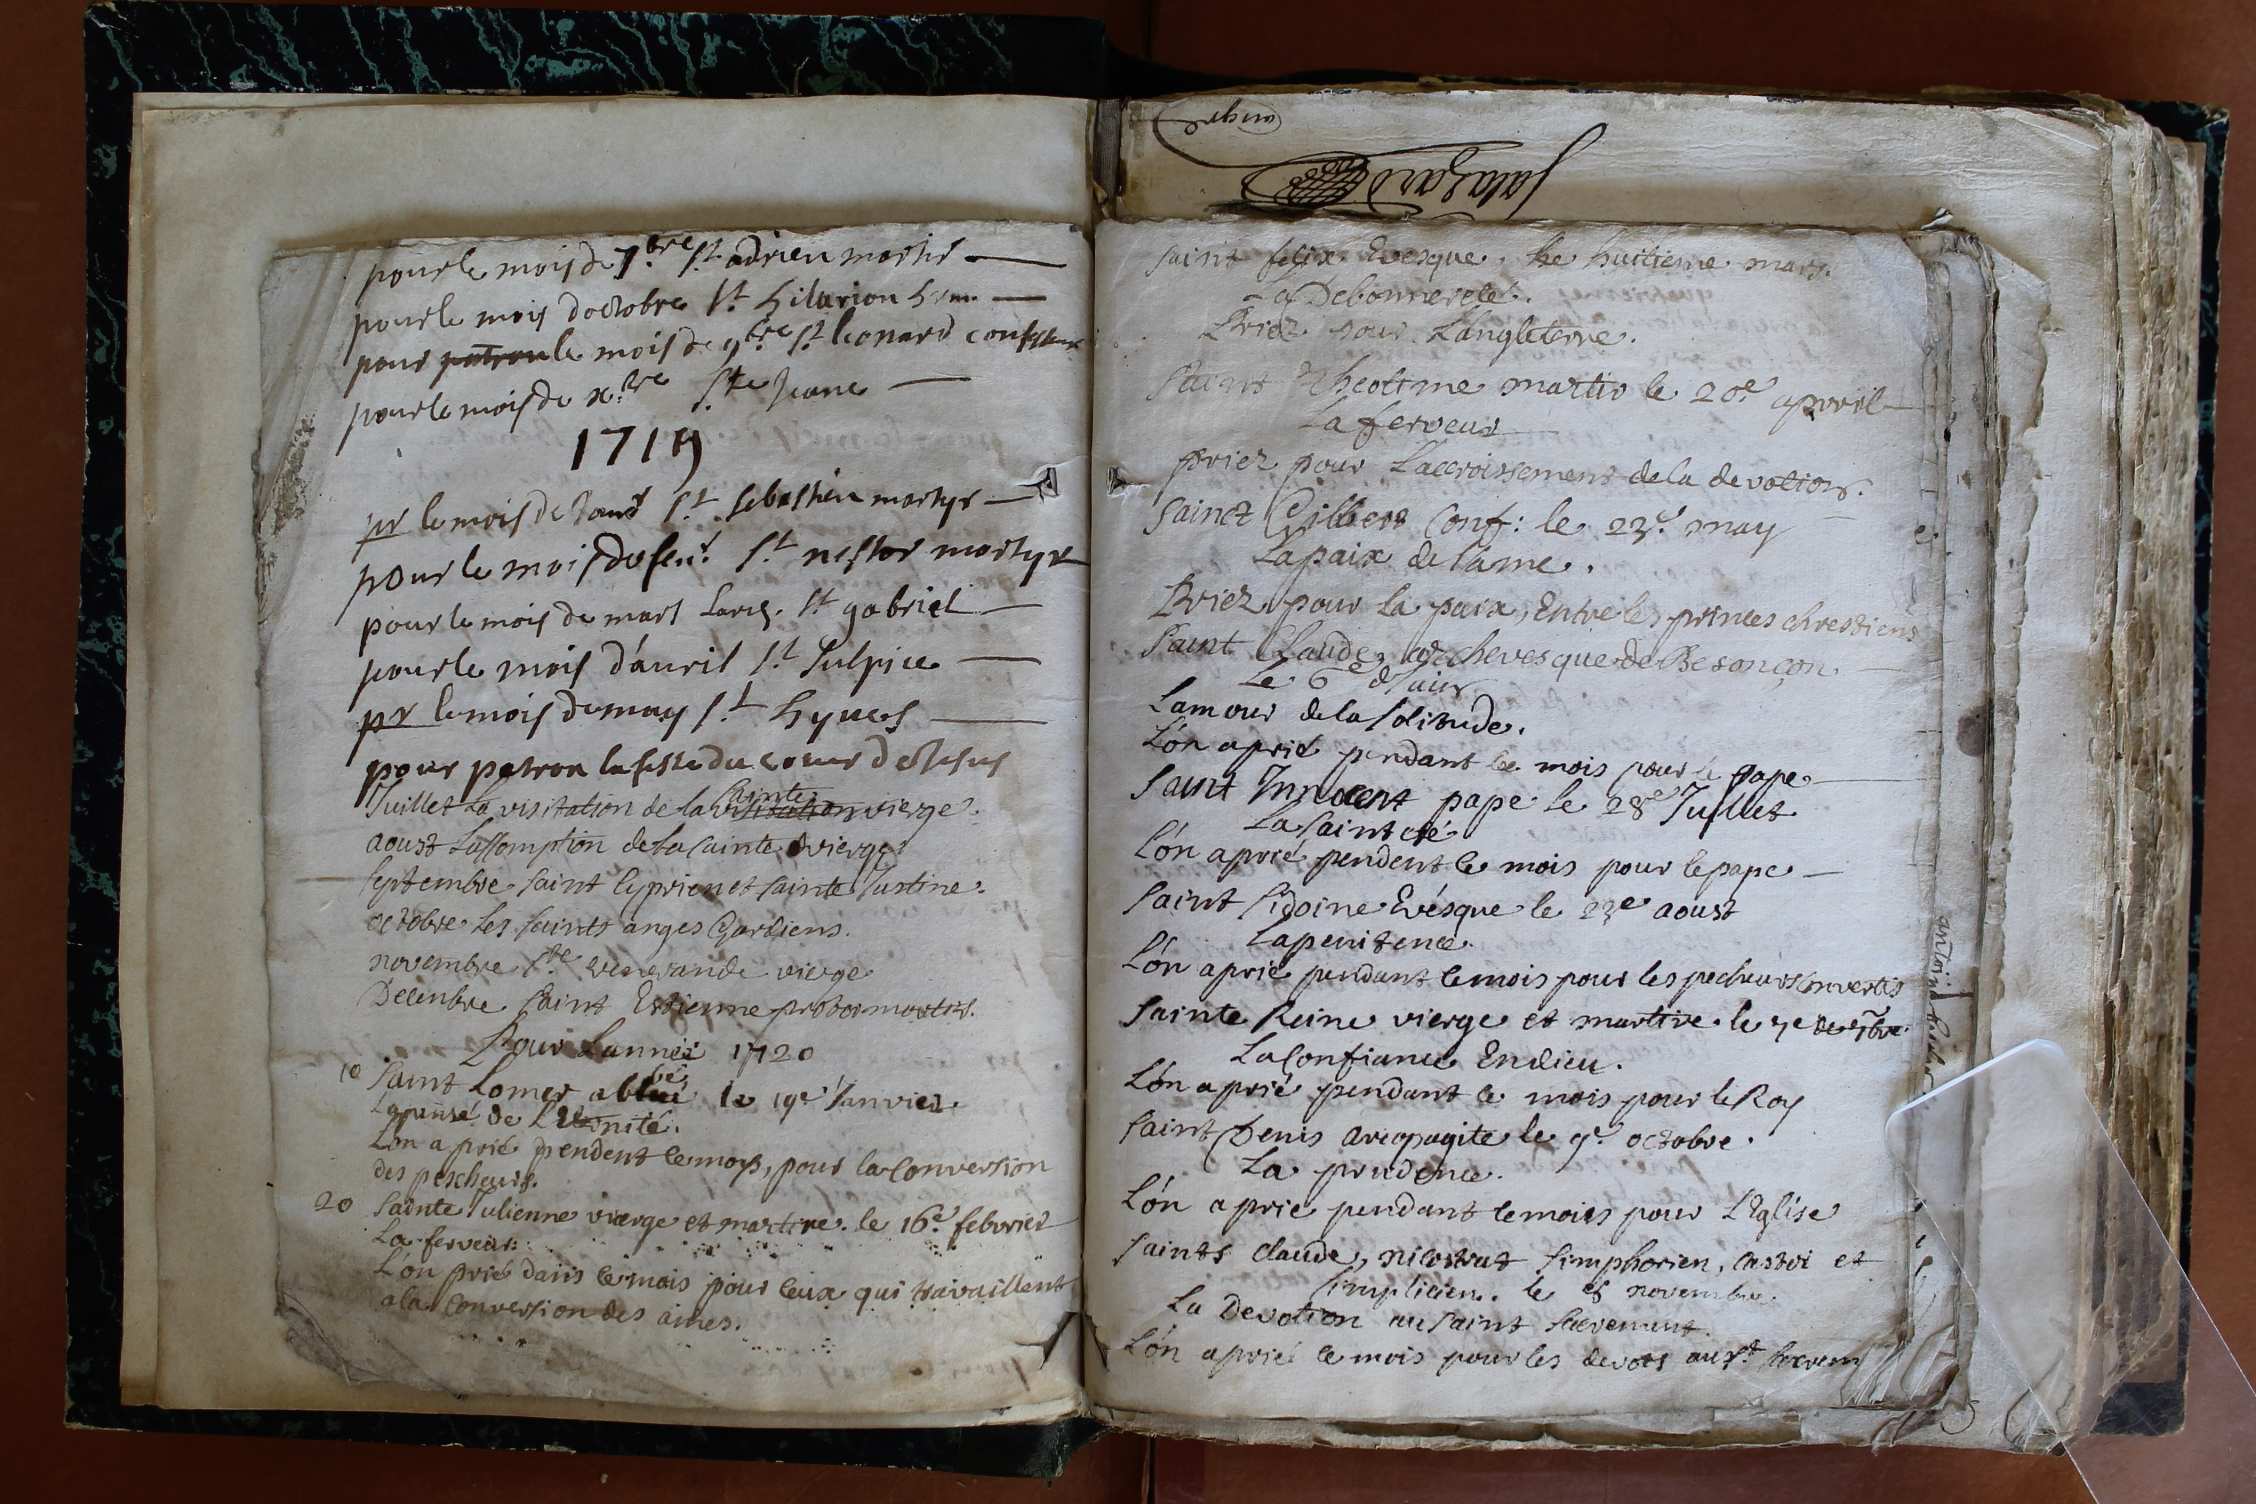 pour le mois de 7.bre St adrien martir
pour le mois doctobre St hilarion herm.
pour patron le mois de 9.bre St leonard confesseur
pour le mois de x.bre Ste Jeane
1719
pr le mois de Janr St sebastien martyr
pour le mois de feur St nestor martyr
pour le mois de mars Larcg. St gabriel
pour le mois d'auril St Sulpice
pr le mois de may St hyues
pour patron la feste du coeur de Jesus
Juillet La visitation de la visitation sainte vierge.
aoust Lassomption de la sainte vierge
septembre saint Cyprien et sainte Justine.
octobre les saints anges Gardiens.
novembre Ste venerande vierge
Decenbre saint Estienne protomartir.
Pour Lannéé 1720
10 Saint Lomer abbé le 19e Janvier
La pensé de L'Eternité.
Lon a prié pendent le moys, pour la Conversion
des pescheurs.
20 Sainte Julienne vierge et martire. le 16e. febvrier
La ferveur.
L'on prié dans le mois pour ceux qui travaillent
a la Conversion des ames.
salazard
saint felix Evesque. Le huitieme mars.
La Debonnereté.
Priez pour L'angleterre.
Saint Theotime martir le 20e apvril
La ferveur
priez pour Laccroissement de la devotion.
Sainct Gilbert Conf: le 23e. may
La paix de l'ame.
Priez pour la paix, Entre les princes chrestiens
Saint Claude, archevesque de Besançon.
Le 6e de Juin
Lamour de la solitude.
L'on a prié pendant le mois pour le pape
Saint Innocent pape le 28e Juillet
La sainteté
L'on a prié pendent le mois pour le pape
Saint Sidoine Evésque le 23e aoust
La penitence.
L'on a prié pendant le mois pour les pecheurs Convertis
Sainte Reine vierge et martire le 7e de 7bre.
La Confiance En dieu.
L'on a prié pendant le mois pour le Roy
Saint Denis areopagite le 9e. octobre.
La prudence.
L'on a prié pendant le mois pour L'Eglise
Saints claude, nicostrat simphorien, castoi et
simplicien. le 8 novembre.
La Devotion au saint sacrement.
L'on a prié le mois pour les devots au st. sacrem